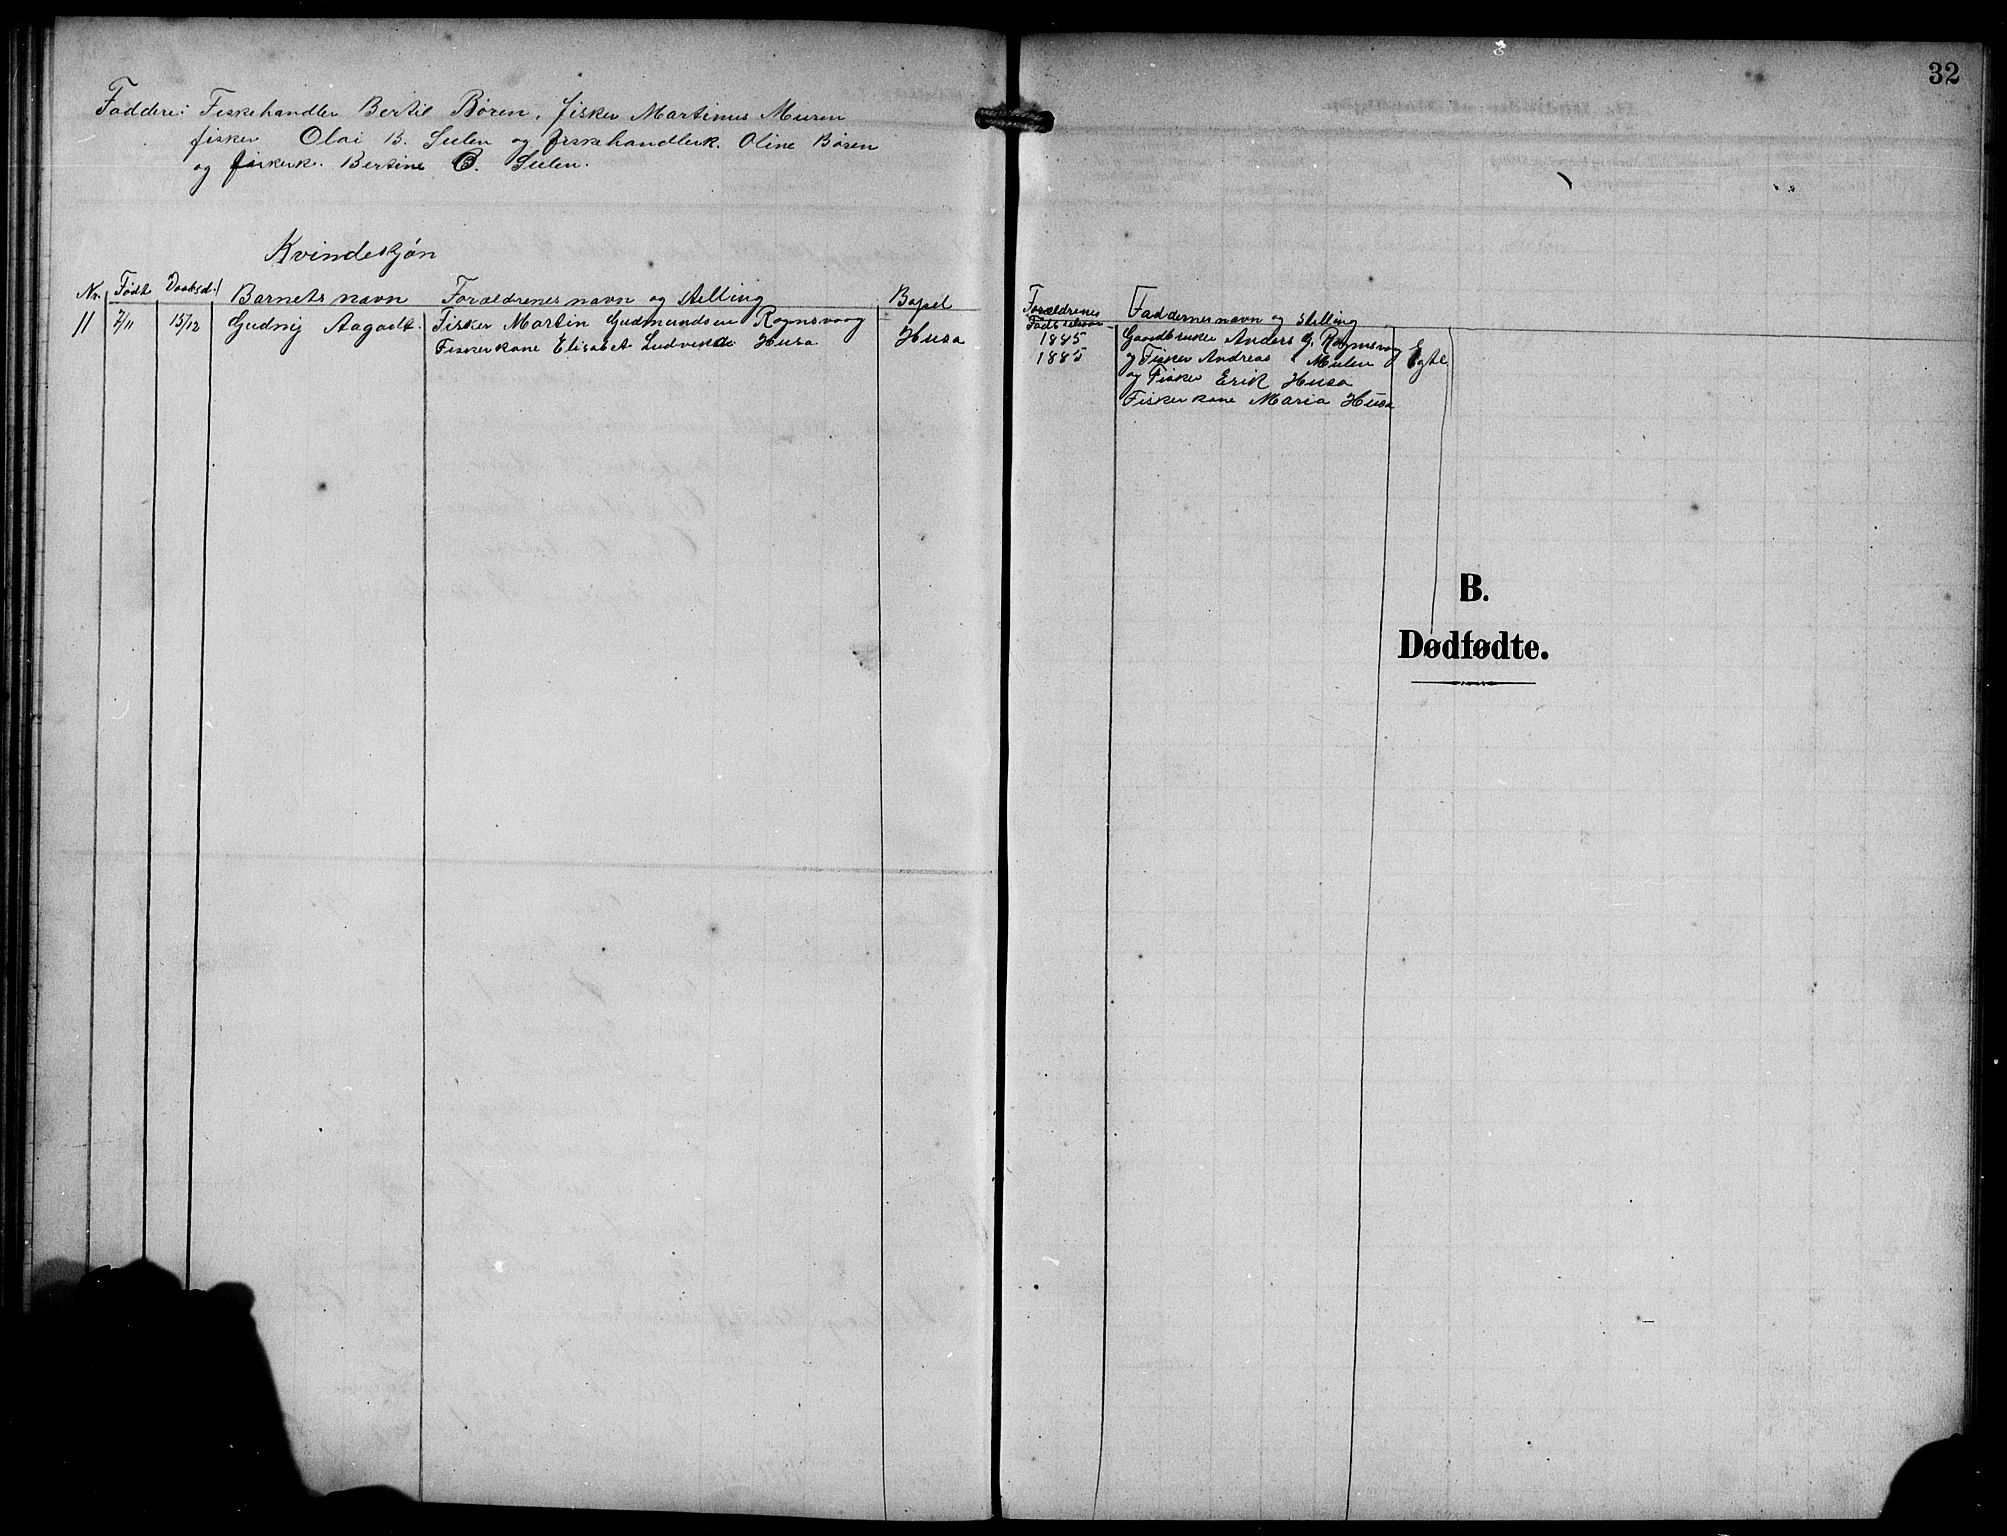 32
Faddere: Fiskehandler Bertil Børen, fisker Martinus Muren
fisker Olai B. Sulen og fiskehandlerk. Oline Børen
og fiskerk. Bertine B. Sulen.
Kvindeskjøn
Nr. Født Daabsd. Barnets navn Forældrenes navn og stilling Bopel
11 7/11 15/12 Gudny Aagodt. Fisker Martin Gudmundsen Rognsvaag Husa
Fiskerkone Elisabet Ludvikd. Husa
Forældrenes Faddernes navn og stilling
Fødselsaar
1885 Gaardbruker Anders G. Rognsvog Egte.
1885 og Fisker Andreas Mulen
og Fisker Erik Husa
Fiskerkone Maria Husa
B.
Dødfødte.